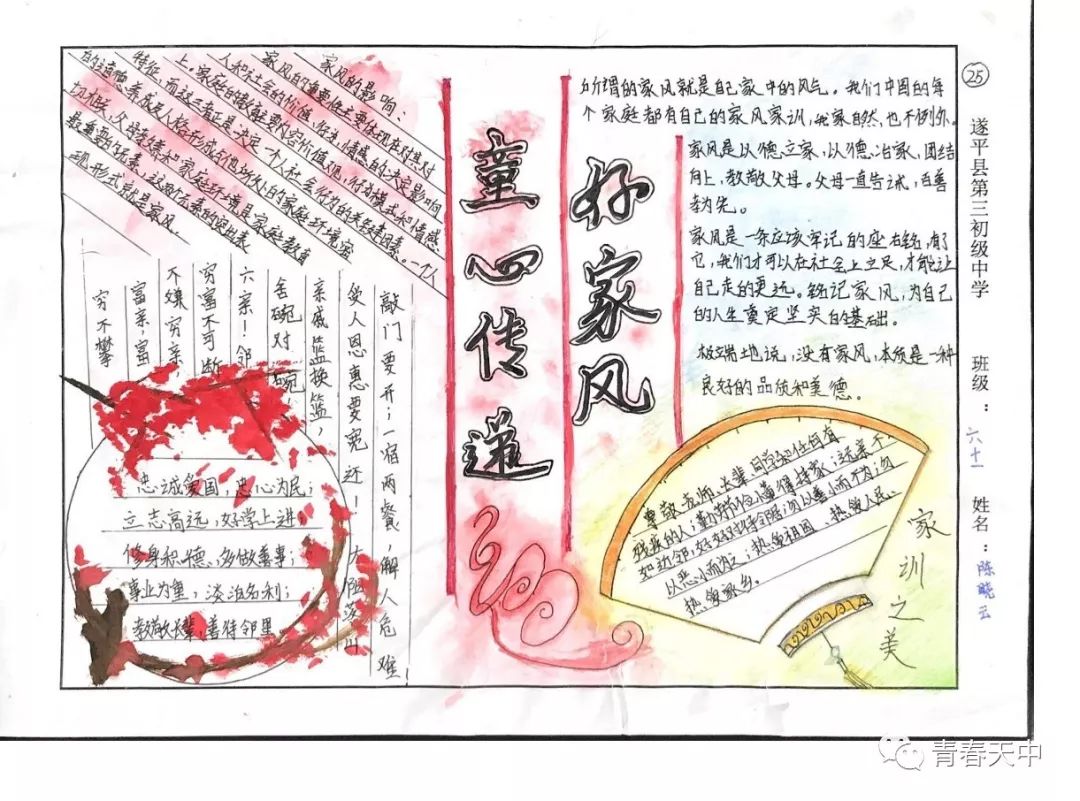 童心传递
好家风
家风的影响：
家风的重要性主要体现在对其对
人和社会的价值，作为情感的决定影响
上。家庭的
特征，而这三者正是决定一个人社会行为的关键因素。一个人
的道德素养及人格形成与他所处的家庭环境密
切相关，父母教养和家庭环境是家庭教育
最重要的因素，这两个因素的突出表
现形式就是家风。
所谓的家风就是自己家中的风气。我们中国的每
个家庭都有自己的家风家训，我家自然也不例外。
家风是以德立家，以德冶家，团结
向上，孝敬父母。父母一直告诉，百善
孝为先。
家风是一条应该牢记的座右铭，有了
它，我们才可以在社会上立足，才能让
自己走的更远。铭记家风，为自己
的人生奠定坚实的基础。
极端地说，没有家风，本质是一种
良好的品质和美德。
敲门要开；一宿两餐，解人危难
使人恩惠要宽还！
亲戚篮换篮，
舍碗对碗，
六亲！邻
穷富不可断
不嫌穷亲
富亲，富
穷不攀
忠诚爱国，忠心为民；
立志高远，好学上进；
修身积德，多做善事；
事业为重，淡泊名利；
孝敬长辈，善待邻里
尊敬老师、长辈、同学和任何有
残疾的人；勤劳节俭懂得持家；远亲不
如近邻，好好对待邻居；勿以善小而不为，勿
以恶小而为之；热爱祖国、热爱人民、
热爱家乡。
家训之美
25
遂平县第三初级中学
班级：六十一
姓名：陈晓云
青春天中